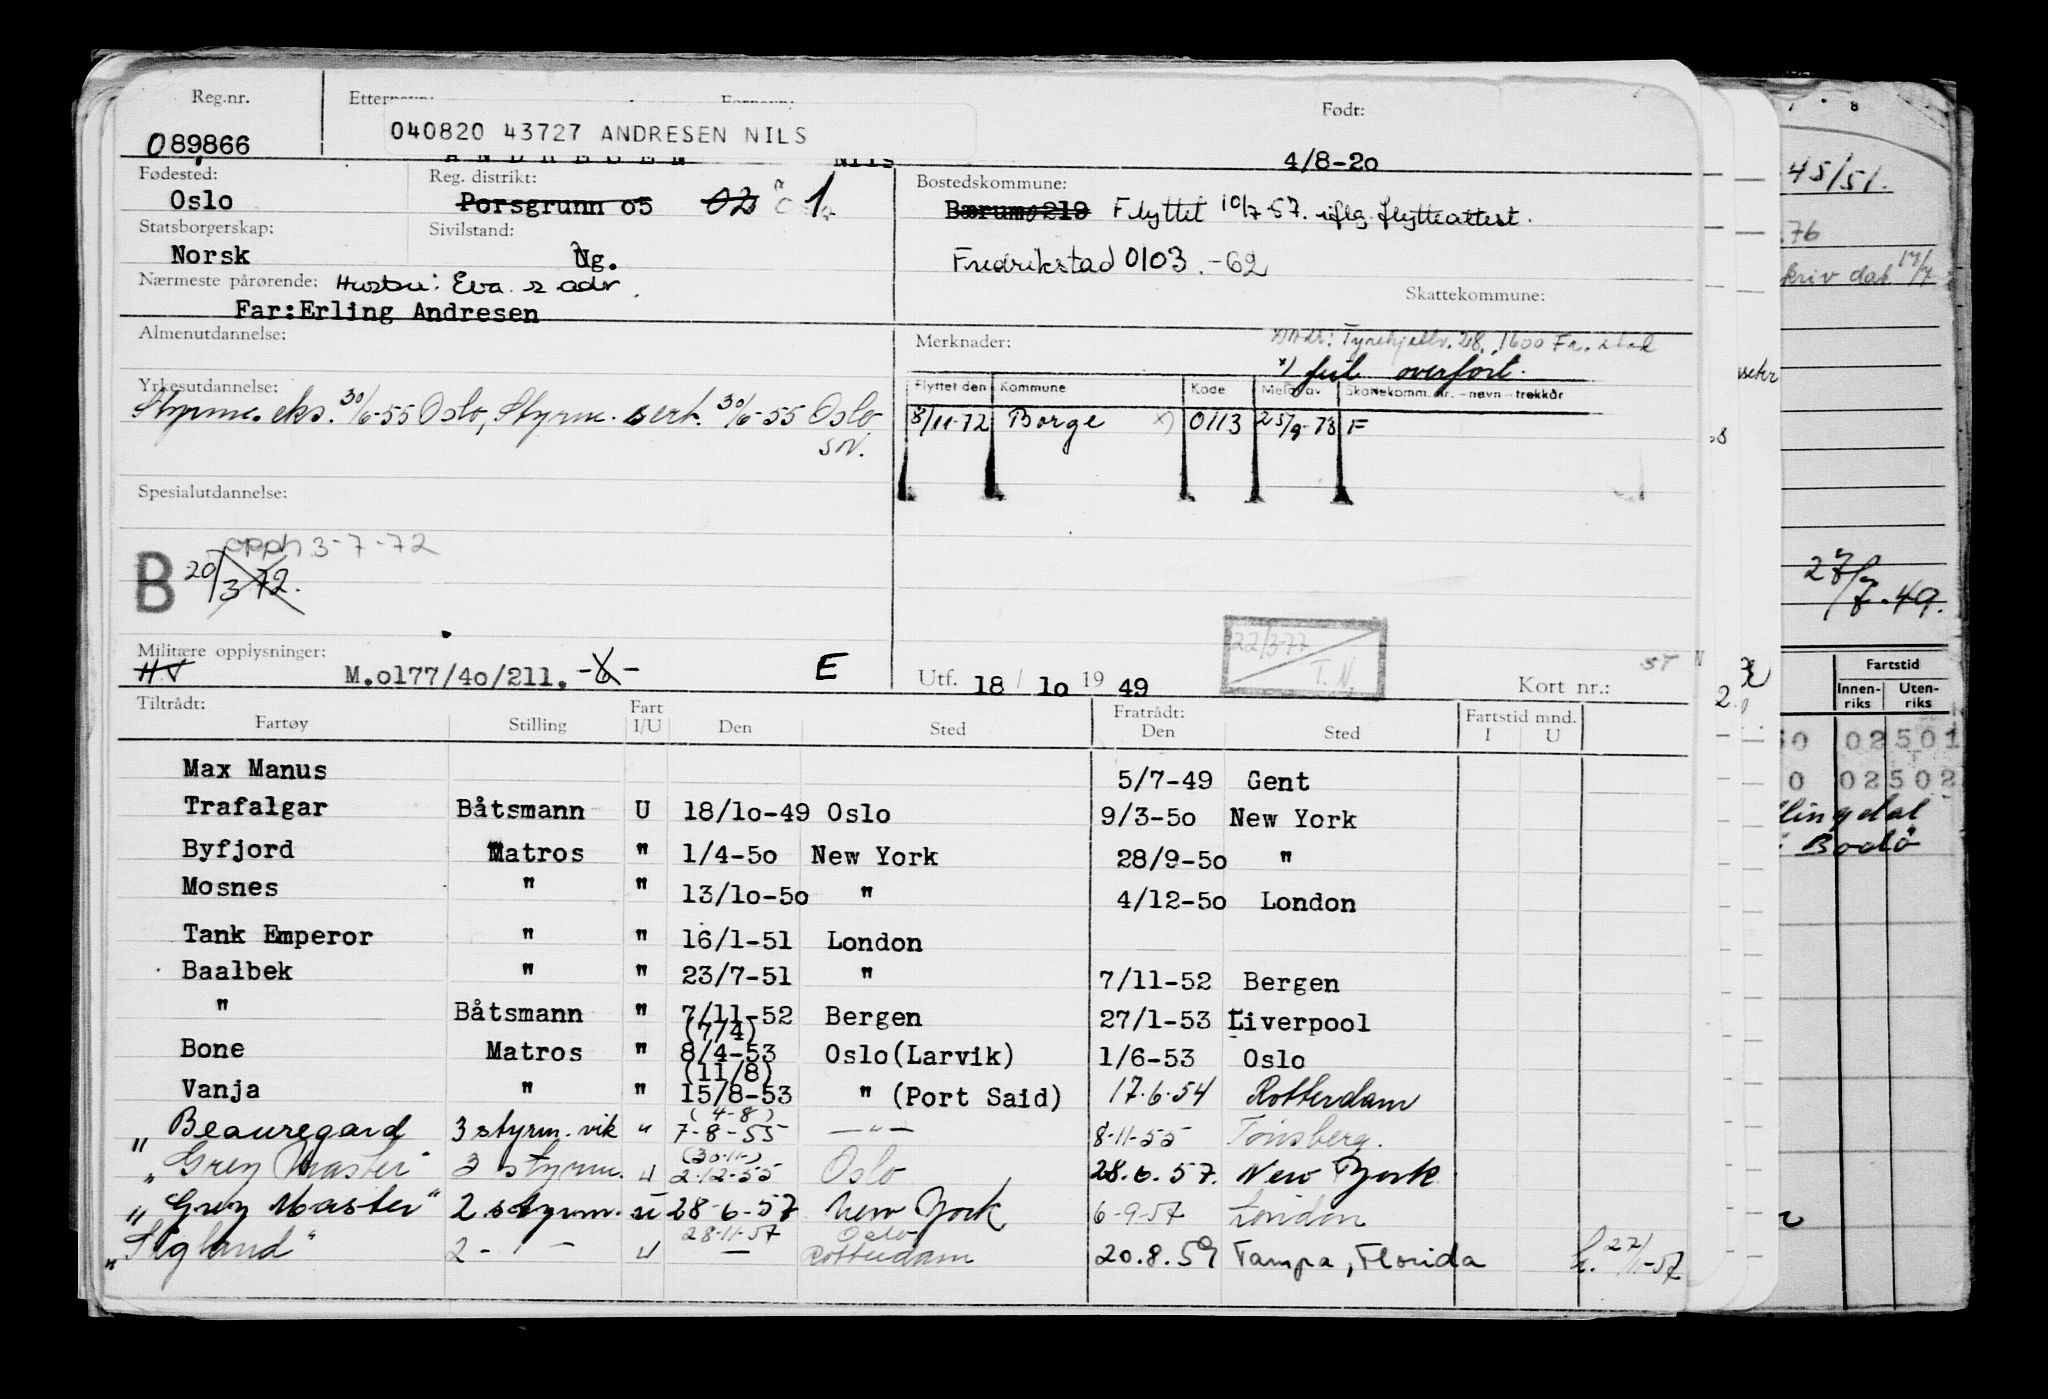 Reg.nr. Etternavn: Fornavn: Født:
089866 040820 43727 ANDRESEN NILS
ANDRESEN Nils 4/8-2o
Fødested: Reg. distrikt: Bostedskommune:
Oslo Porsgrunn o5 02 1 Bærum 0219 Flyttet 10/7-57. iflg. flytteattest.
Statsborgerskap: Sivilstand:
Norsk Ug. Fredrikstad 0103.-62
Nærmeste pårørende: Hustru: Eva s adr. Skattekommune:
Far:Erling Andresen
Almenutdannelse: Merknader: x) Adr: Tyrihjellv. 28, 1600 Fr.stad
x) feil overført.
Yrkesutdannelse: Flyttet den Kommune Kode Meld. av Skattekomm. nr. - navn - trekkår
Styrm. eks. 30/6-55 Oslo, Styrm. sert. 30/6-55 Oslo 8/11-72 Borge x) 0113 25/9-73 F
SN.
Spesialutdannelse:
opph 3-7-72
B 20/3 72.
Militære opplysninger:
HV M.o177/4o/211. -6- E Utf. 18 / 1o 19 49 22/3-77 T.N. ST Kort nr.:
Tiltrådt: Fratrådt: Fartstid mnd.
Fartøy Stilling Fart I/U Den Sted Den Sted I U
Max Manus 5/7-49 Gent
Trafalgar Båtsmann U 18/1o-49 Oslo 9/3-5o New York
Byfjord Matros " 1/4-5o New York 28/9-5o "
Mosnes " " 13/1o-5o " 4/12-5o London
Tank Emperor " " 16/1-51 London
Baalbek " " 23/7-51 " 7/11-52 Bergen
" Båtsmann " 7/11-52 Bergen 27/1-53 Liverpool
(7/4)
Bone Matros " 8/4-53 Oslo(Larvik) 1/6-53 Oslo
(11/8)
Vanja " " 15/8-53 " (Port Said) 17.6.54 Rotterdam
(4-8)
"Beauregard 3 styrm. vik " 7-8-55 -"- 8-11-55 Tønsberg.
(30-11-)
"Grey Master" 3 styrm. u 2-12-55 Oslo 28.6.57. New York
"Grey Master" 2 styrm. u 28-6-57 New York 6-9-57 London
28-11-57 Oslo
"Sigland" 2 - " - u — Rotterdam 20.8.59 Tampa, Florida h. 27/11-57
45/51.
.76
skriv dat 17/7
27/7-49.
Fartstid
Innen-riks Uten-riks
50 02501
0 02502
Bodø